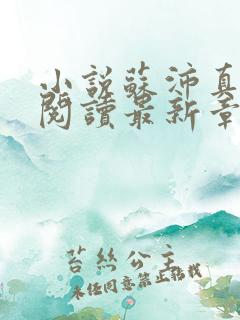 小説蘇沛真
閱讀最新章
苔絲公主
未经同意禁止转载